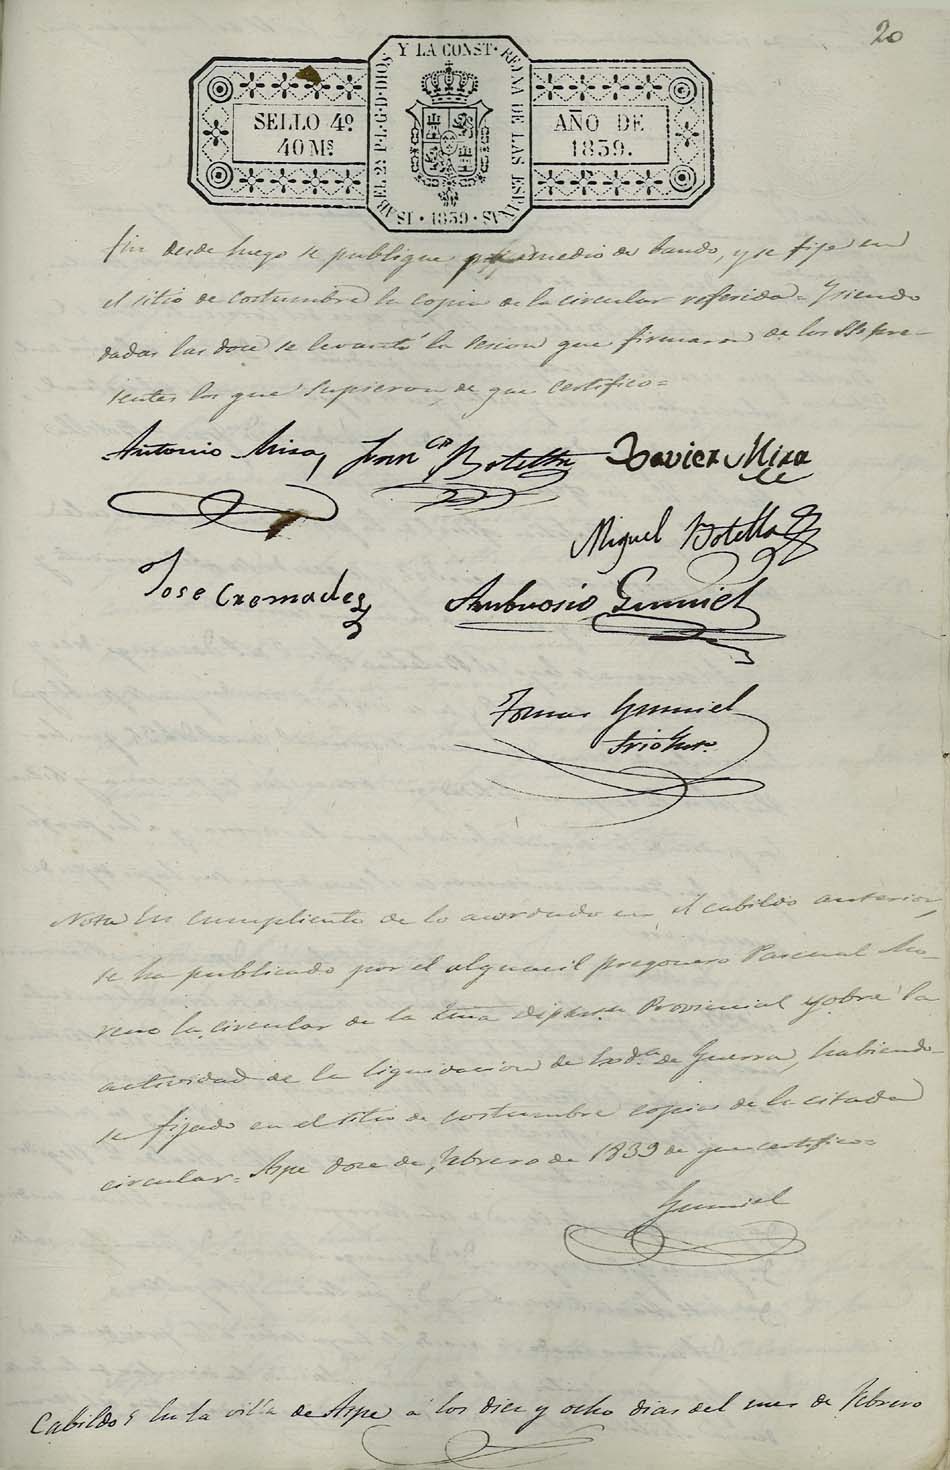 20
ISABEL 2ª P. L. G. D. DIOS Y LA CONST. REYNA DE LAS ESPAÑAS
SELLO 4º
40 Ms
AÑO DE
1839.
· 1839 ·
fin desde luego se publique por medio de bando, y se fije en
el sitio de costumbre la copia de la circular referida = Y siendo
dadas las doce se levantó la sesion que firmaron de los SSs pre-
sentes los que supieron, de que certifico =
Antonio Mira, Franco Botella Xavier Mira
Miguel Botella
Jose Cremades
Ambrosio Gumiel
Tomas Gumiel
Nota En cumplimiento de lo acordado en el cabildo anterior,
se ha publicado por el alguacil pregonero Pascual Mo-
reno la circular de la Exma Diputn Provincial sobre la
actividad de la liquidacion de de Guerra, habiendo-
se fijado en el sitio de costumbre copia de la citada
circular = Aspe doce de Febrero de 1839 de que certifico =
Gumiel
Cabildo En la villa de Aspe á los diez y ocho dias del mes de Febrero